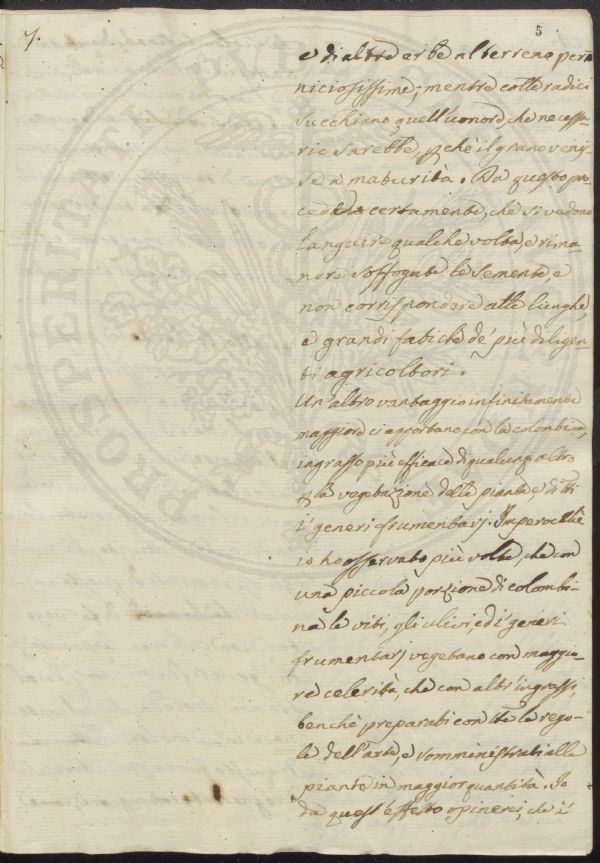 7.
5
e di altre erbe al terreno per=
niciosissime; mentre colle radici
succhiano quell'umore, che necessa
rio sarebbe, pchè il grano venis
se a maturità. Da questo pro
cede certamente, che si vedono
languire qualche volta, e rima
nere soffogate le sementi, e
non corrispondere alle lunghe,
e grandi fatiche de' più diligen=
ti agricoltori.
Un'altro vantaggio infinitamente
maggiore ci apportano con la colombina,
ingrasso più efficace di qualunq altro
p la vegetazione delle piante e di tti
i generi frumentarj. Imperocchè
io ho osservato più volte, che con
una piccola porzione di colombi=
na le viti, gli ulivi, ed i generi
frumentarj vegetano con maggio=
re celerità, che con altri ingrassi,
benchè preparati con tte le rego=
le dell'arte, e somministrati alle
piante in maggior quantità. Io
da quest'effetto opinerei, che i
PROSPERITATI